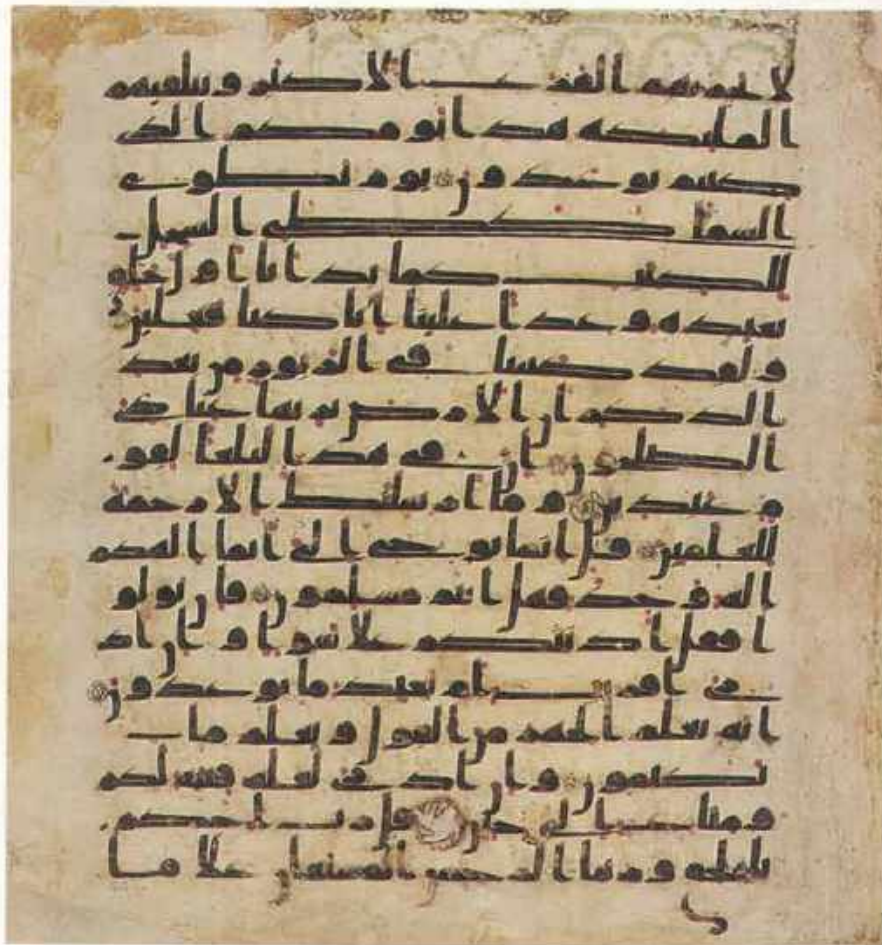 لا يحزنهم الفزع الاكبر وتتلقيهم
الملئكه هذا يومكم الذى
كنتم توعدون يوم نطوى
السما كطى السجل
للكتب كما بدانا اول خلق
نعيده وعدا علينا انا كنا فعلين
ولقد كتبنا فى الزبور من بعد
الذكر ان الارض يرثها عبادى
الصلحون ان فى هذا لبلغا لقو
م عبدين وما ارسلنك الا رحمة
للعلمين قل انما يوحى الى انما الهكم
اله وحد فهل انتم مسلمون فان تولو
ا فقل اذنتكم علا سوا وان اد
رى اقريب ام بعيد ما توعدون
انه يعلم الجهر من القول ويعلم ما
تكتمون وان ادرى لعله فتنه لكم
ومتاع الى حين قل رب احكم
بالحق وربنا الرحمن المستعان علا ما